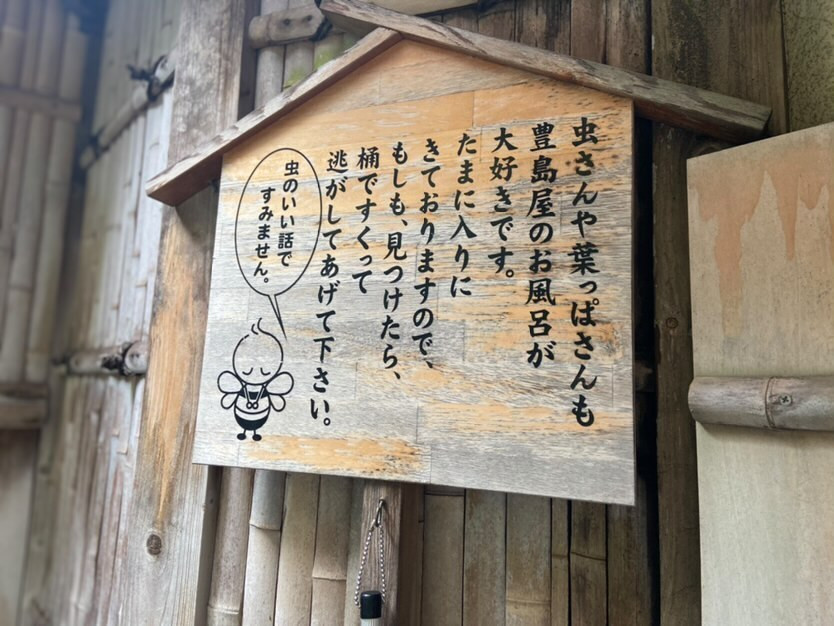 虫さんや葉っぱさんも
豊島屋のお風呂が
大好きです。
たまに入りに
きておりますので、
もしも、見つけたら、
桶ですくって
逃がしてあげて下さい。
虫のいい話で
すみません。